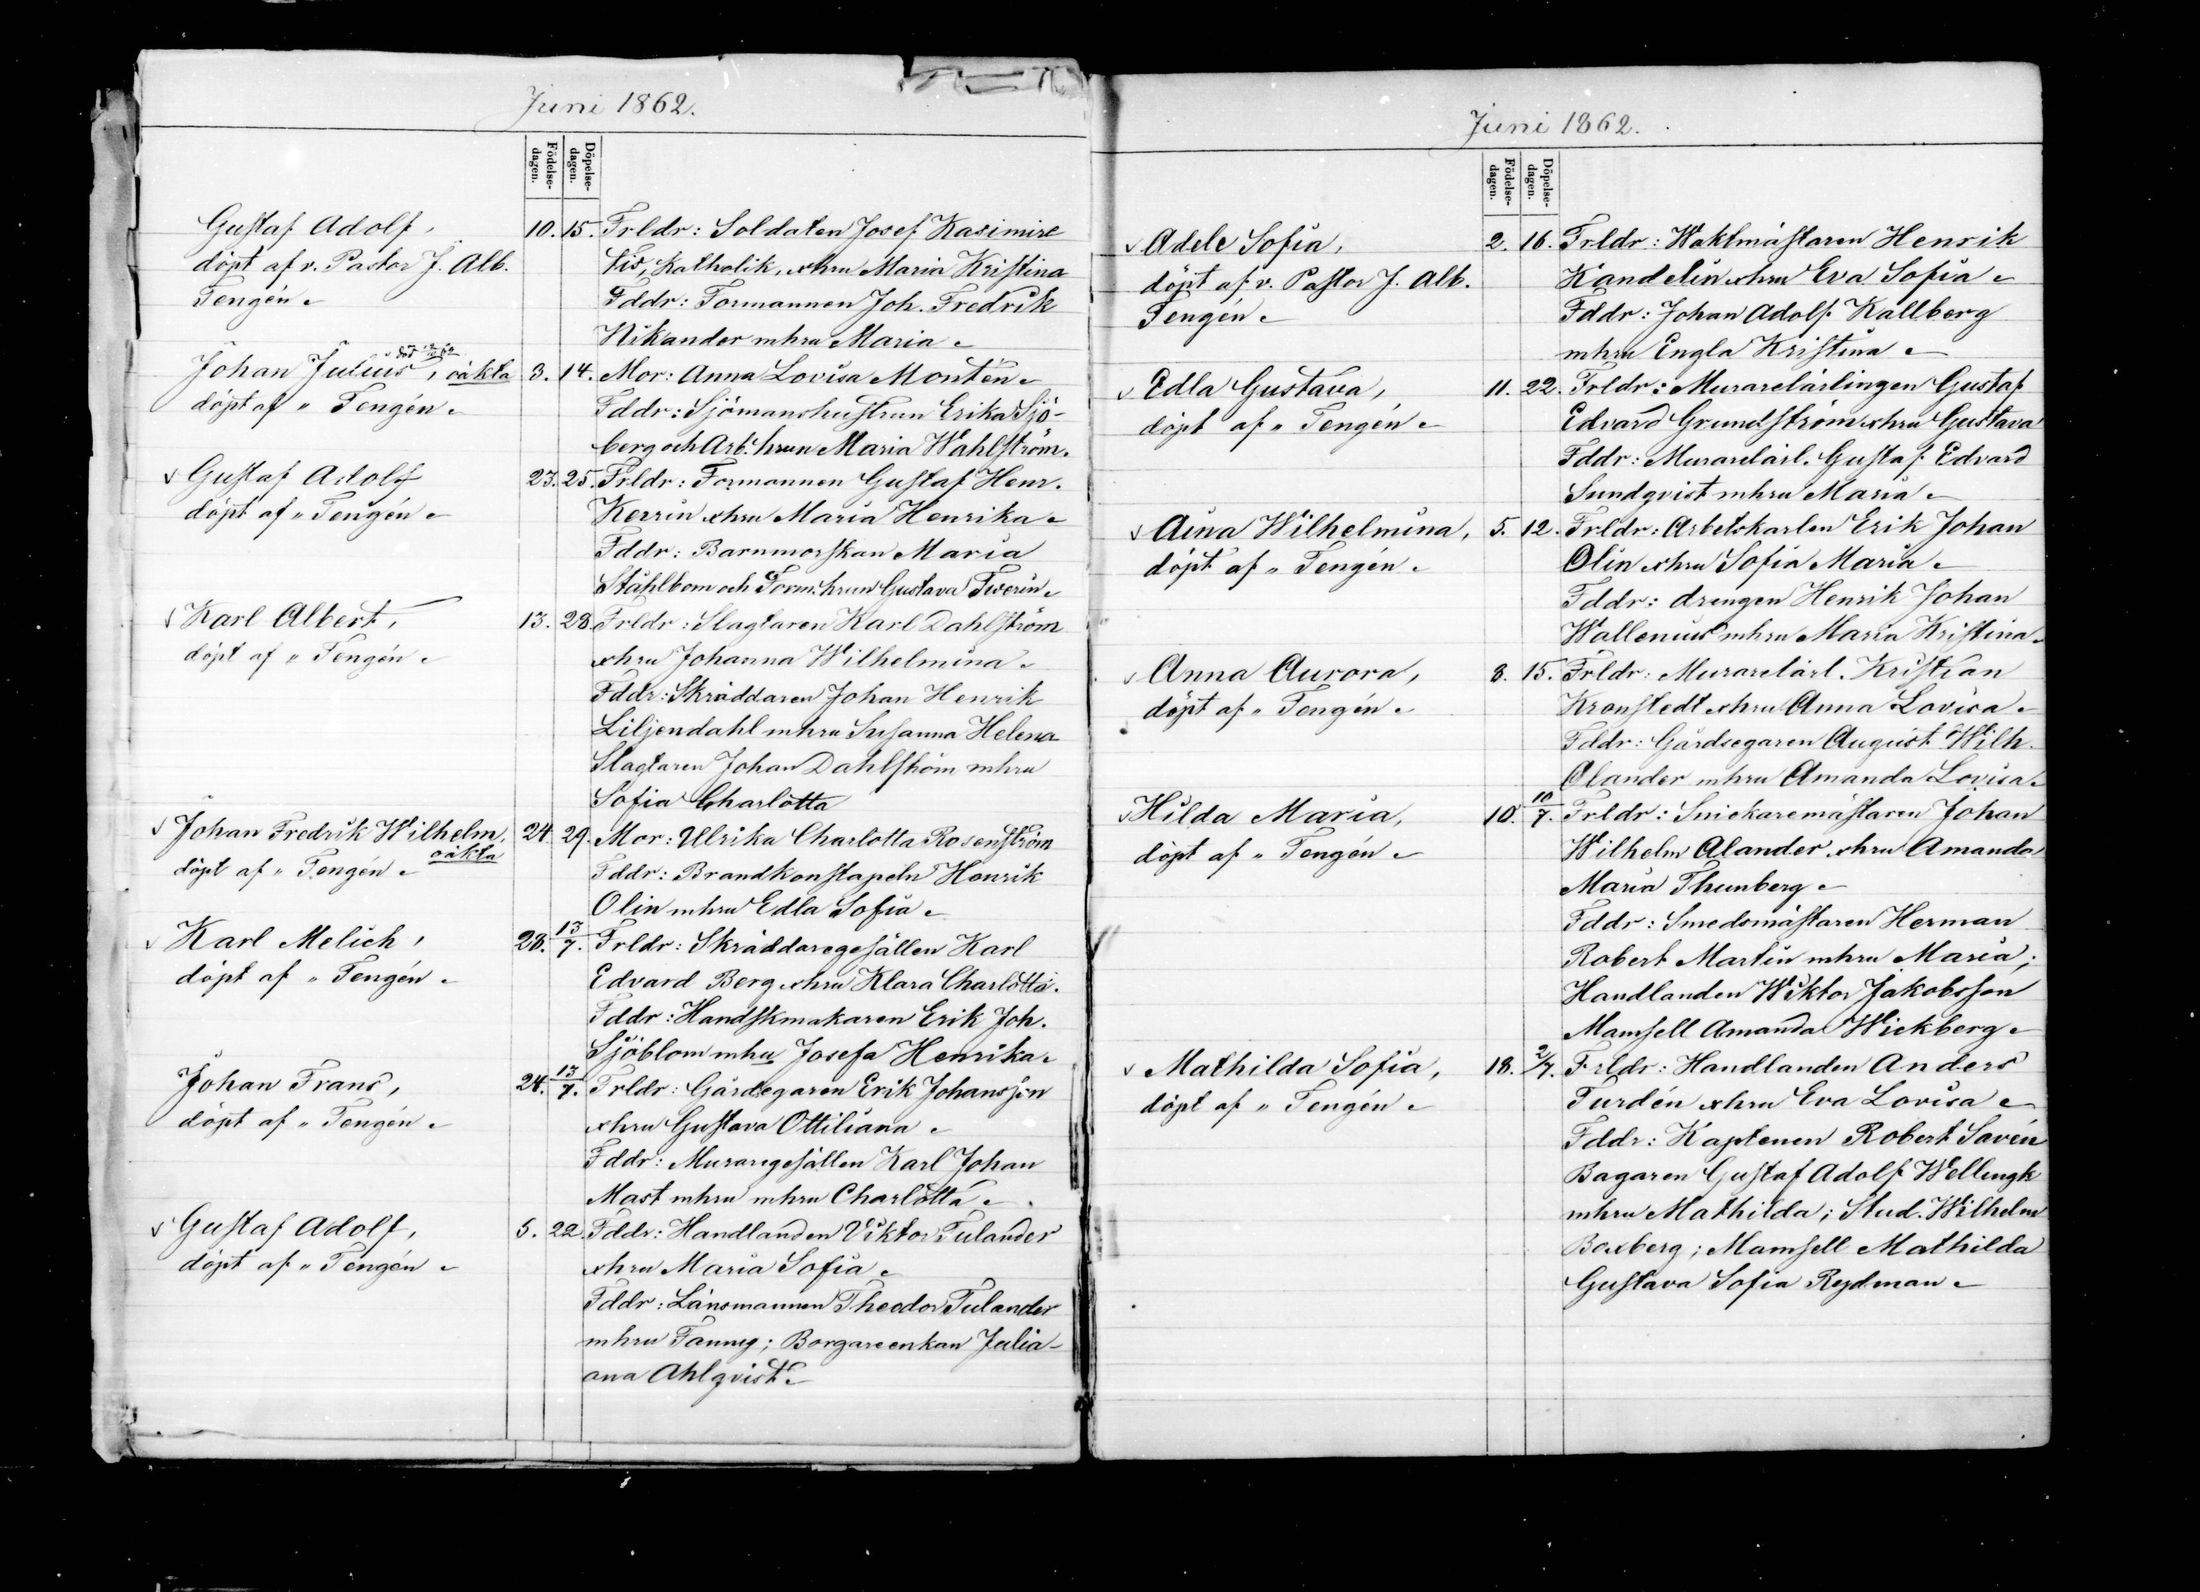 Juni 1862.
Födelse-dagen.
Döpelse-dagen.
Gustaf Adolf,
döpt af v. Pastor J. Alb.
Tengén.
10. 15. Frldr: Soldaten Josef Kasimire
Katholik, o hru Maria Kristina
Fddr: Formannen Joh. Fredrik
Nikander m hru Maria.
Johan Julius, oäkta
döpt af " Tengén.
3. 14. Mor: Anna Lovisa Montén.
Fddr: Sjömanshustrun Erika Sjö-
berg och Arb. hrun Maria Wahlström.
v Gustaf Adolf
döpt af " Tengén.
23. 25. Frldr: Formannen Gustaf Henr.
Kerrin o hru Maria Henrika.
Fddr: Barnmorskan Maria
Ståhlbom och Form. hrun Gustava Twerin.
v Karl Albert,
döpt af " Tengén.
13. 28. Frldr: Slagtaren Karl Dahlström
o hru Johanna Wilhelmina.
Fddr: Skräddaren Johan Henrik
Liljendahl m hru Susanna Helena
Slagtaren Johan Dahlström m hru
Sofia Charlotta
v Johan Fredrik Wilhelm,
döpt af " Tengén. oäkta
24. 29. Mor: Ulrika Charlotta Rosenström
Fddr: Brandkonstapeln Henrik
Olin m hru Edla Sofia.
v Karl Melich,
döpt af " Tengén.
28. 13/7. Frldr: Skräddaregesällen Karl
Edvard Berg o hru Klara Charlotta.
Fddr: Handskmakaren Erik Joh.
Sjöblom m hu Josefa Henrika.
Johan Frans,
döpt af " Tengén.
24. 13/7. Frldr: Gårdsegaren Erik Johansson
o hru Gustava Ottiliana.
Fddr: Muraregesällen Karl Johan
Mast m hru m hru Charlotta.
v Gustaf Adolf,
döpt af " Tengén.
5. 22. Fddr: Handlanden Viktor Tulander
o hru Maria Sofia.
Fddr: Länsmannen Theodor Tulander
m hru Fanny; Borgareenkan Julia-
ana Ahlqvist.
Juni 1862.
Födelse-dagen.
Döpelse-dagen.
v Adele Sofia,
döpt af v. Pastor J. Alb.
Tengén.
2. 16. Frldr: Waktmästaren Henrik
Kandelin o hru Eva Sofia.
Fddr: Johan Adolf Kallberg
m hru Engla Kristina.
v Edla Gustava,
döpt af " Tengén.
11. 22. Frldr: Murarelärlingen Gustaf
Edvard Grundström o hru Gustava
Fddr: Murarelärl. Gustaf Edvard
Sundqvist m hru Maria.
v Aina Wilhelmina,
döpt af " Tengén.
5. 12. Frldr: Arbetskarlen Erik Johan
Olin o hru Sofia Maria.
Fddr: drengen Henrik Johan
Wallenius m hru Maria Kristina.
v Anna Aurora,
döpt af " Tengén.
8. 15. Frldr: Murarelärl. Kristian
Kronstedt o hru Anna Lovisa.
Fddr: Gårdsegaren August Wilh.
Olander m hru Amanda Lovisa.
v Hilda Maria,
döpt af " Tengén.
10. 10/7. Frldr: Snickaremästaren Johan
Wilhelm Alander o hru Amanda
Maria Thunberg.
Fddr: Smedsmästaren Herman
Robert Martin m hru Maria;
Handlanden Wiktor Jakobsson
Mamsell Amanda Wickberg.
v Mathilda Sofia,
döpt af " Tengén.
18. 2/7. Frldr: Handlanden Anders
Turdén o hru Eva Lovisa.
Fddr: Kaptenen Robert Savén
Bagaren Gustaf Adolf Wellingk
m hru Mathilda; Stud. Wilhelm
Boxberg; Mamsell Mathilda
Gustava Sofia Rydman.